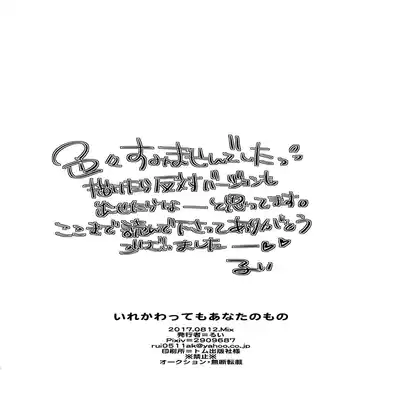 色々すみませんでしたっ
描けたら反対バージョンも
出せたらなーと思ってます。
ここまで読んで下さってありがとう
ございましたー♡♡
るい
いれかわってもあなたのもの
2017.0812.Mix
発行者=るい
Pixiv=2909687
rui0511ak@yahoo.co.jp
印刷所=トム出版社様
※禁止※
オークション・無断転載